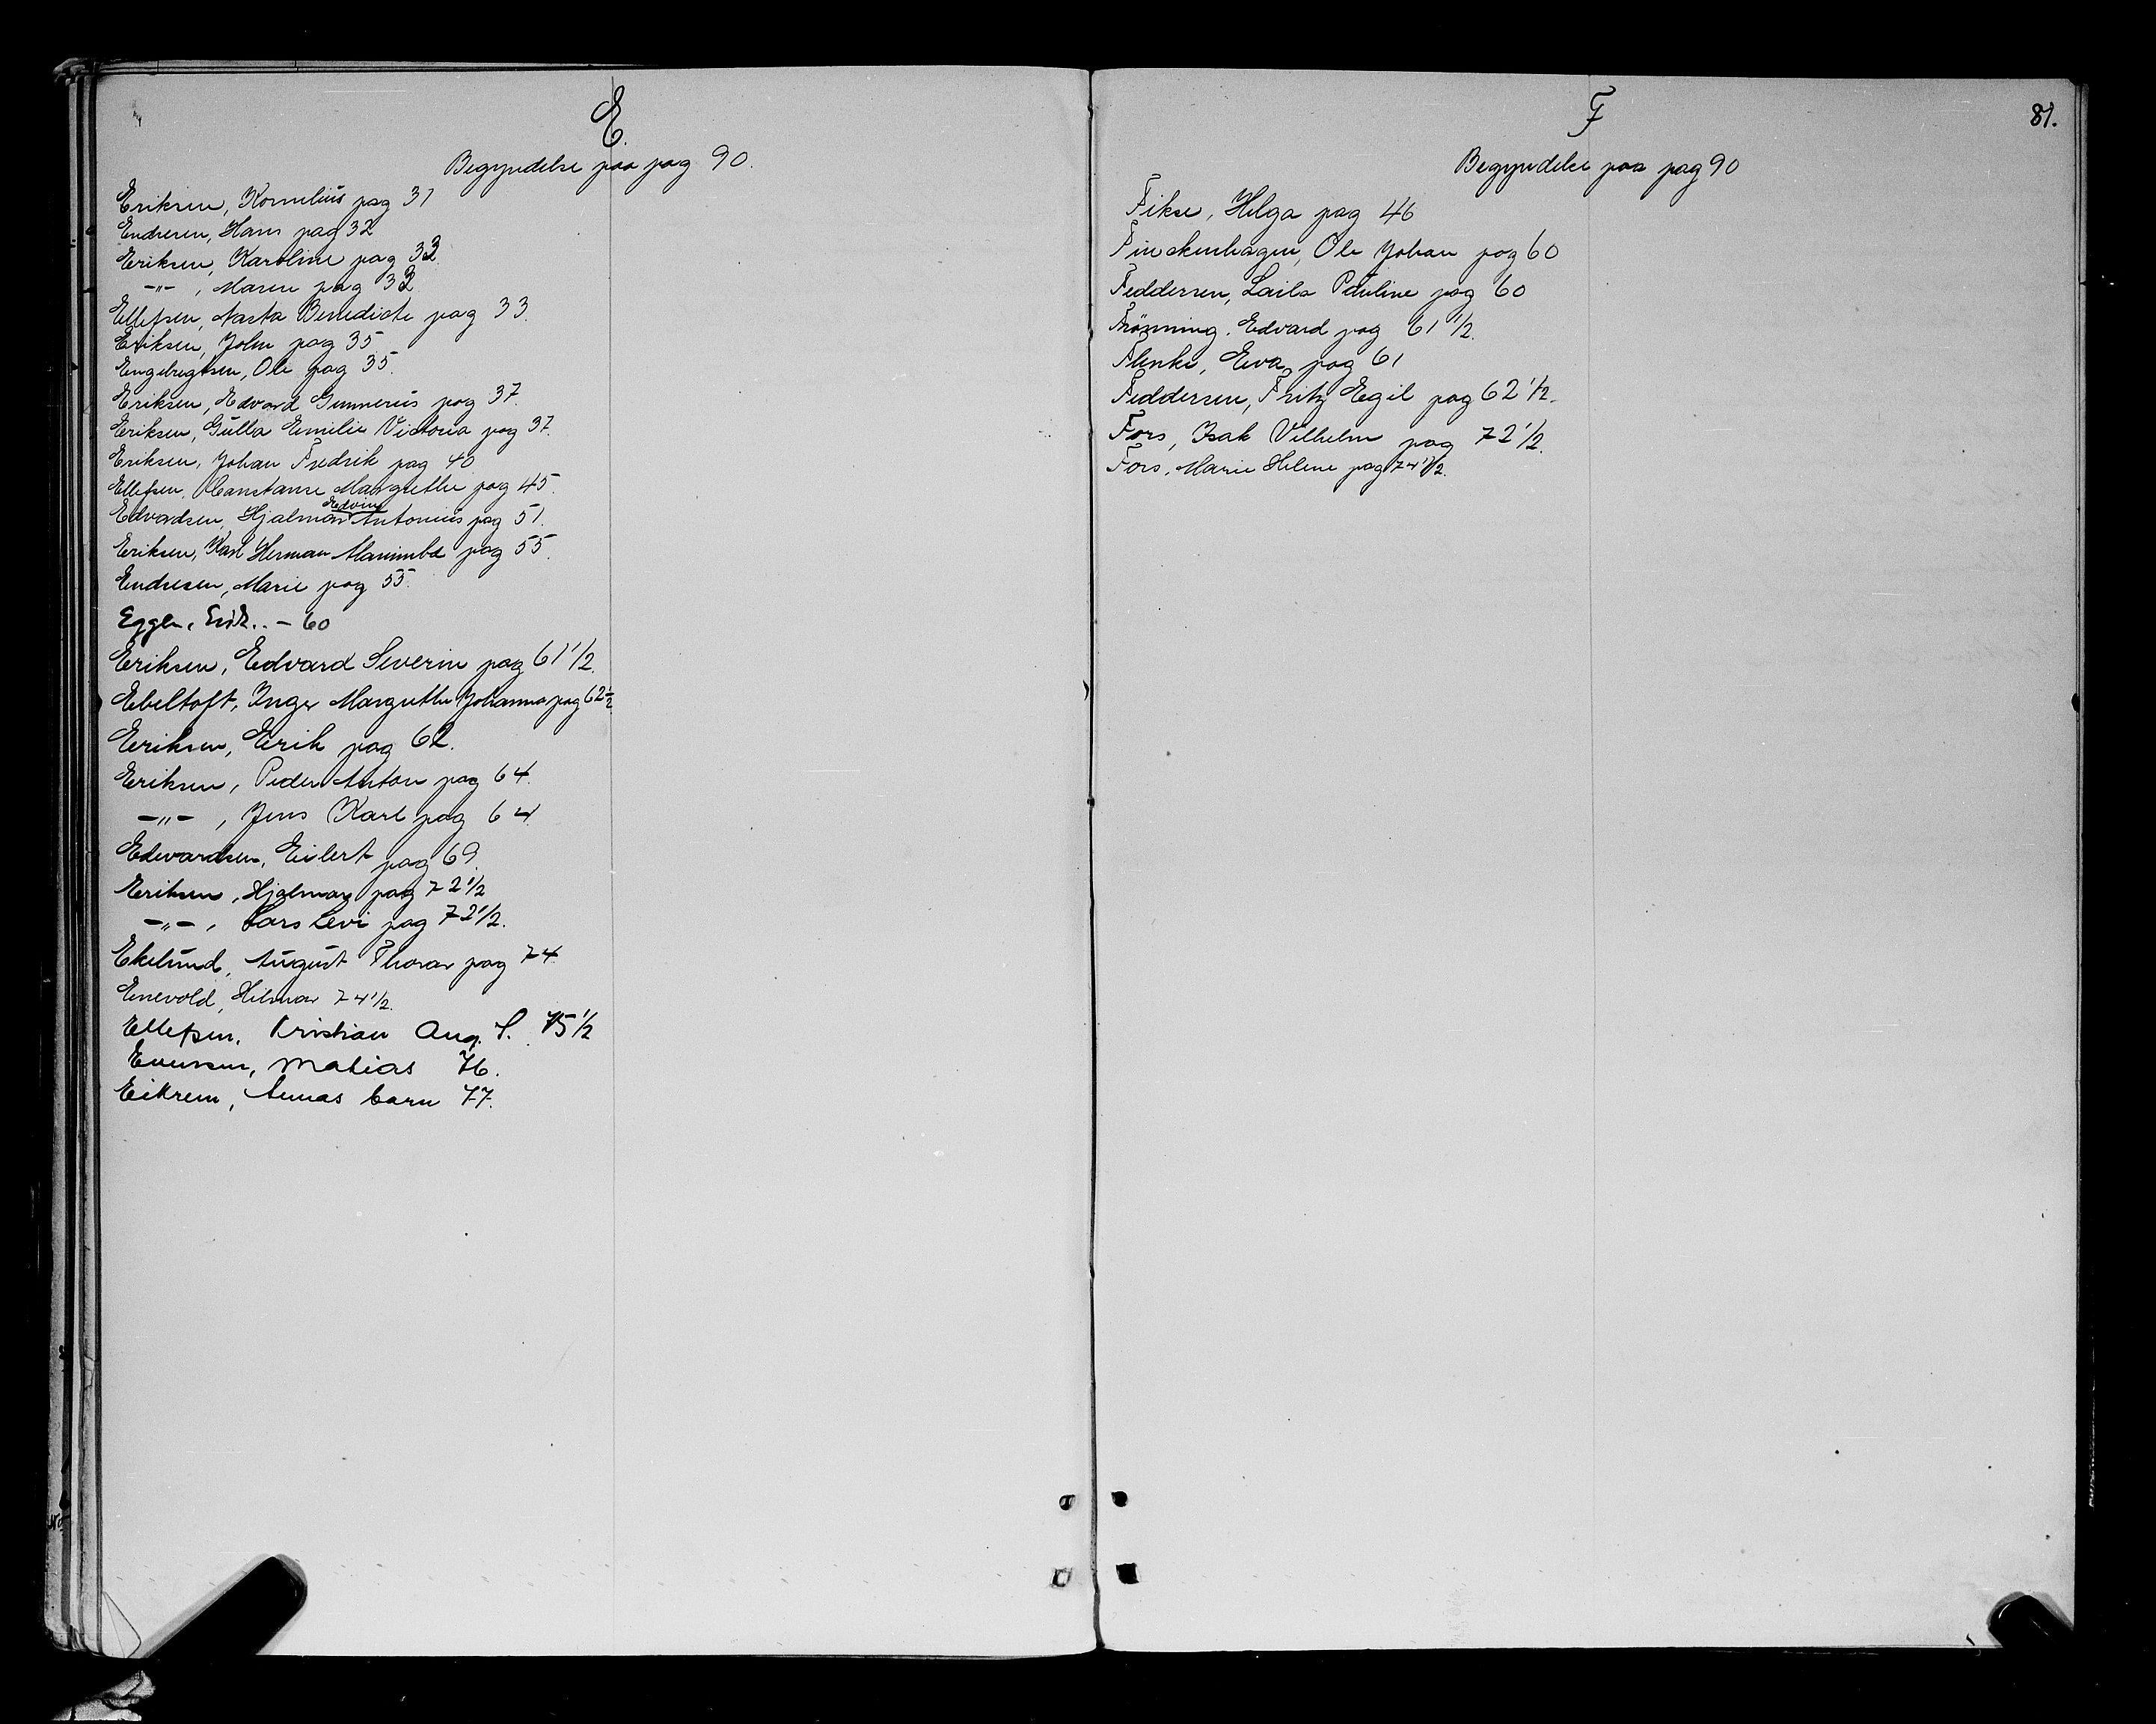 E.
Begyndelse paa pag 90.
Eriksen, Kornelius pag 31
Endresen, Hans pag 32
Eriksen, Karoline pag 33
-"- , Maren pag 33
Ellefsen, Aasta Benedicte pag 33.
Eriksen, John pag 35
Engebregtsen, Ole pag 35.
Eriksen, Edvard Gunnerius pag 37.
Eriksen, Gulla Emilie Victoria pag 37.
Eriksen, Johan Fredrik pag 40
Ellefsen, Constanse Margrethe pag 45.
Edvardsen, Hjalmar Edvin Antonius pag 51.
Eriksen, Karl Herman pag 55.
Endresen, Marie pag 55.
Eggen, Erik. - 60
Eriksen, Edvard Severin pag 61 1/2.
Ebeltoft, Inger Margrethe Johanna pag 62 1/2
Eriksen, Erik pag 62.
Eriksen, Peder Anton pag 64.
-"- , Jens Karl pag 64
Edvardsen, Eilert pag 69.
Eriksen, Hjalmar pag 72 1/2
-"- , Lars Levi pag 72 1/2.
Ekelund, August Thorar pag 74
Enevold, Hilmar 74 1/2.
Ellefsen, Kristian Aug. S. 75 1/2
Evensen, Matias 76.
Eikrem, Annas barn 77.
81.
F
Begyndelse paa pag 90
Fikse, Helga pag 46
Finckenhagen, Ole Johan pag 60
Feddersen, Laila Pauline pag 60
Frönning, Edvard pag 61 1/2.
Flenke, Eva pag 61
Feddersen, Fritz Egil pag 62 1/2.
Fors, Isak Vilhelm pag 72 1/2.
Fors, Marie Helene pag 74 1/2.